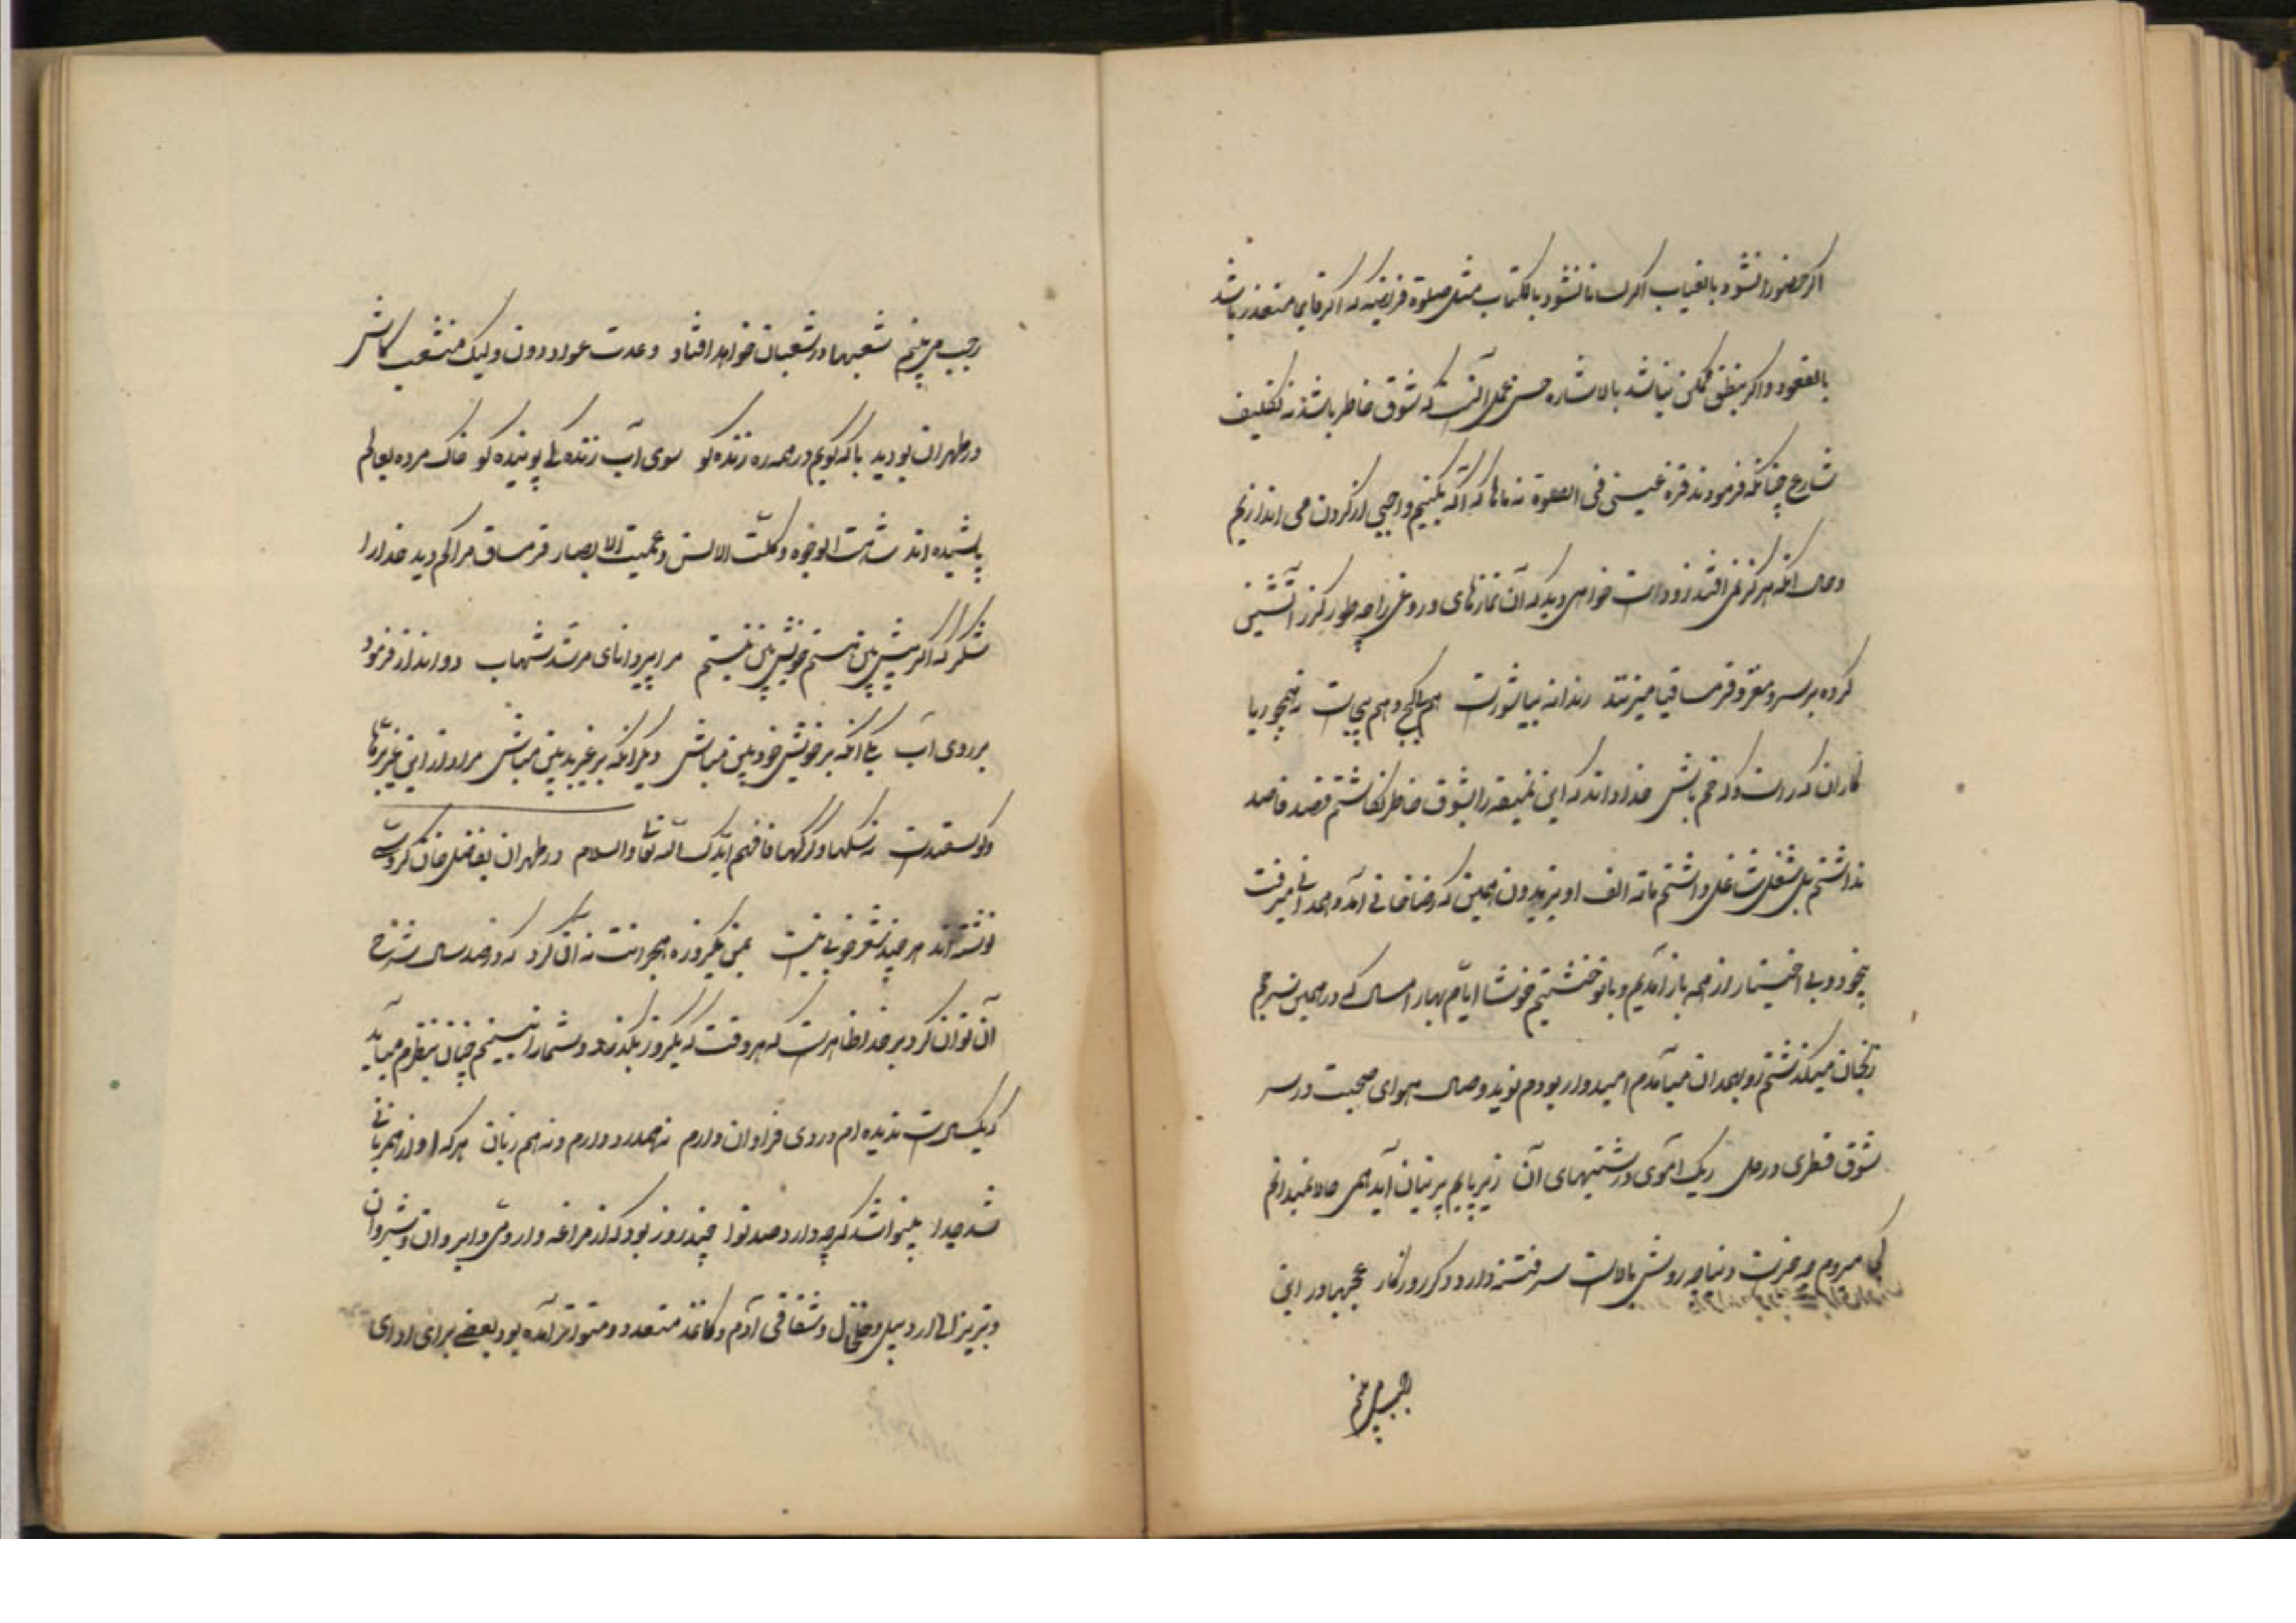 اگر حضورا نشود بالغیاب اگر لسانا نشود بالکتاب مثل صلوة فریضه که اگر قایما متعذر باشد
بالقعود و اگر بنطق ممکن نباشد بالاشاره حسن عمل آنست که شوق خاطر باشد نه تکلیف
شارع چنانکه فرمودند قرة عینی فی الصلوة نه ماها که اگر بکنیم واجبی از گردن می اندازیم
و حال آنکه هرگز نمی افتد زود است خواهی دید که آن نمازهای دروغی را چه طور گرز آتشین
کرده بر سر و مغز قرمساقها میزنند رندانه بیا شورت هم پاکچ و هم پیچ است نه همچو ریا
کاران که راست و که خم باش خدا داند که این نمیقه را بشوق خاطر نگاشتم قصد قاصد
نداشتم بل شغل شاغل داشتم مائة الف او یزیدون همین که رضاخانی آمد و همدانی میرفت
بیخود و بی اختیار از همه باز آمدیم و با تو نشستیم خوشا ایام بهار امسال که در همین سرچم
زنجان میگذشتم رو بهمدان میآمدم امیدوار بودم نوید وصال هوای صحبت در سر
شوق فطری در دل ریک آموی و درشتیهای آن زیر پایم پرنیان آید همی حالا نمیدانم
کی میروم چه خبر است دنیا چه روش بالاست سر فتنه دارد دگر روزگار عجبها در این
رجب می بینم
رجب می بینم شعبها در شعبان خواهد افتاد وعدت عواد دون ولیک منشعب کاش
در طهران بودید با که گویم در همه ده زنده کو سوی آب زندگی پوینده کو خاک مرده بعالم
پاشیده اند شاهت الوجوه و کلت الالسن و عمیت الابصار قرمساق مرا کم دید خدا را
شکر که اگر پیش بین نیستم خویش بین نیستم مرا پیر دانای مرشد شهاب دو اندرز فرمود
بر روی آب یکی آنکه بر خویش خودبین مباش دگر آنکه بر غیر بدبین مباش مراد از این غیریها
نه سگها و گرگها فافهم ایدک الله تعالی والسلام در طهران بفاضل خان گروسی
نوشته اند هر چند شعر خوبی نیست بمن یکروزه هجرانت نه آن کرد که در صد سال شرح
آن توان کرد بر خدا ظاهر است که هر وقت که یکروز بگذرد و شما را نبینم چنان بنظرم میآید
که یکسال است ندیده ام دردی فراوان دارم نه همدرد دارم و نه هم زبان هر که او از همزبانی
شد جدا بینوا شد گرچه دارد صد نوا چند روز بود که از مراغه و ارومی و ایروان و شیروان
و تبریز الی اردبیل و خلخال و شقاقی آدم و کاغذ متعدد و متواتر آمده بود بعضی برای ادای